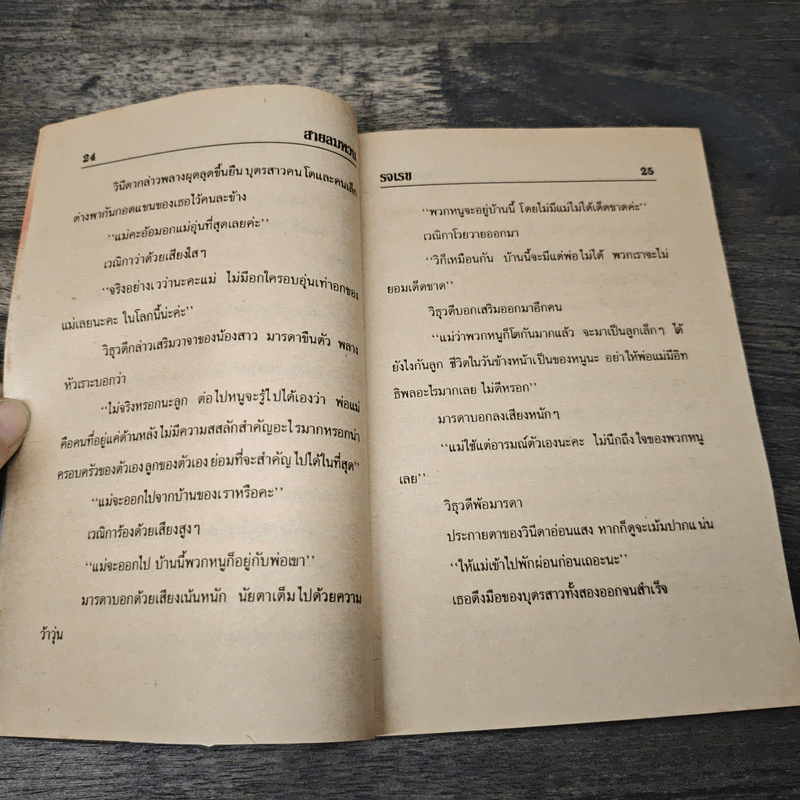 24
สายลมหวน
วินีตากล่าวพลางผุดลุดขึ้นยืน บุตรสาวคนโตและคนเล็ก
ต่างพากันกอดแขนของเธอไว้คนละข้าง
“แม่คะอ้อมอกแม่อุ่นที่สุดเลยค่ะ”
เวณิกาว่าด้วยเสียงใสๆ
“จริงอย่างเวว่านะคะแม่ ไม่มีอกใครอบอุ่นเท่าอกของ
แม่เลยนะคะ ในโลกนี้น่ะค่ะ”
วิธุวดีกล่าวเสริมวาจาของน้องสาว มารดาขืนตัว พลาง
หัวเราะบอกว่า
“ไม่จริงหรอกนะลูก ต่อไปหนูจะรู้ไปได้เองว่า พ่อแม่
คือคนที่อยู่แค่ด้านหลังไม่มีความสสลักสำคัญอะไรมากหรอกน่า
ครอบครัวของตัวเอง ลูกของตัวเอง ย่อมที่จะสำคัญไปได้ในที่สุด”
“แม่จะออกไปจากบ้านของเราหรือคะ”
เวณิการ้องด้วยเสียงสูงๆ
“แม่จะออกไป บ้านนี้พวกหนูก็อยู่กับพ่อเขา”
มารดาบอกด้วยเสียงเน้นหนัก นัยตาเต็มไปด้วยความ
ว้าวุ่น
รจเรข
25
“พวกหนูจะอยู่บ้านนี้ โดยไม่มีแม่ไม่ได้เด็ดขาดค่ะ”
เวณิกาโวยวายออกมา
“วิก็เหมือนกัน บ้านนี้จะมีแต่พ่อไม่ได้ พวกเราจะไม่
ยอมเด็ดขาด”
วิธุวดีบอกเสริมออกมาอีกคน
“แม่ว่าพวกหนูก็โตกันมากแล้ว จะมาเป็นลูกเล็กๆ ได้
ยังไงกันลูก ชีวิตในวันข้างหน้าเป็นของหนูนะ อย่าให้พ่อแม่มีอิท
ธิพลอะไรมากเลย ไม่ดีหรอก”
มารดาบอกลงเสียงหนักๆ
“แม่ใช้แต่อารมณ์ตัวเองนะคะ ไม่นึกถึงใจของพวกหนู
เลย”
วิธุวดีพ้อมารดา
ประกายตาของวินีตาอ่อนแสง หากก็ดูจะเม้มปากแน่น
“ให้แม่เข้าไปพักผ่อนก่อนเถอะนะ”
เธอดึงมือของบุตรสาวทั้งสองออกจนสำเร็จ